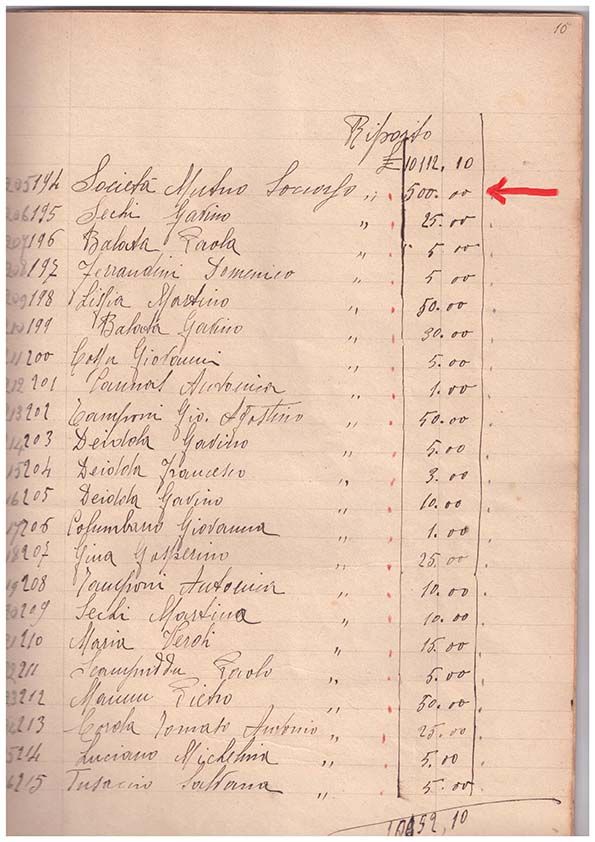 10
Riporto
£ 10112,10
205 194 Società Mutuo Soccorso " 500.00
206 195 Sechi Gavino " 25.00
207 196 Balata Paola " 5.00
208 197 Ferrandini Domenico " 5.00
209 198 Martino " 50.00
210 199 Balata Gavino " 30.00
211 200 Cossu Giovanni " 5.00
212 201 Cannas Antonica " 1.00
213 202 Tamponi Gio. Agostino " 50.00
14 203 Deidda Gavino " 5.00
15 204 Deidda Francesco " 3.00
16 205 Deidda Gavino " 10.00
17 206 Columbano Giovanna " 1.00
18 207 Gina Gosperino " 25.00
19 208 Tamponi Antonica " 10.00
20 209 Sechi Martina " 10.00
21 210 Maria Verdi " 15.00
22 211 Scampuddu Paolo " 5.00
23 212 Mannu Pietro " 50.00
213 Corda Tomato Antonio " 25.00
5 214 Luciano Michelina " 5.00
6 215 Tusacciu Saltana " 5.00
10952,10